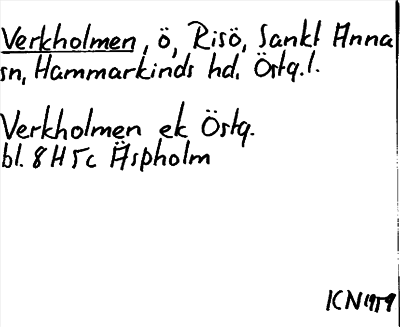 Verkholmen, ö, Risö, Sankt Anna
sn, Hammarkinds hd. Östg.l.
Verkholmen ek Östg.
bl. 8H5c Äspholm
KN1959